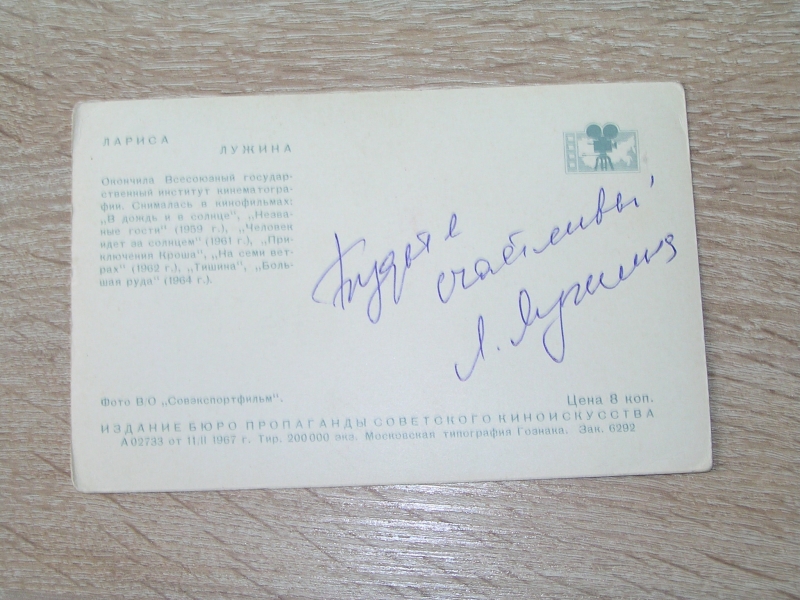 ЛАРИСА
ЛУЖИНА
Окончила Всесоюзный государ-
ственный институт кинематогра-
фии. Снималась в кинофильмах:
„В дождь и в солнце", „Незва-
ные гости" (1959 г.), „Человек
идет за солнцем" (1961 г.), „При-
ключения Кроша", „На семи вет-
рах" (1962 г.), „Тишина", „Боль-
шая руда" (1964 г.).
Будьте
счастливы!
Л. Лужина
Фото В/О „Совэкспортфильм".
Цена 8 коп.
ИЗДАНИЕ БЮРО ПРОПАГАНДЫ СОВЕТСКОГО КИНОИСКУССТВА
А02733 от 11/II 1967 г. Тир. 200000 экз. Московская типография Гознака. Зак. 6292